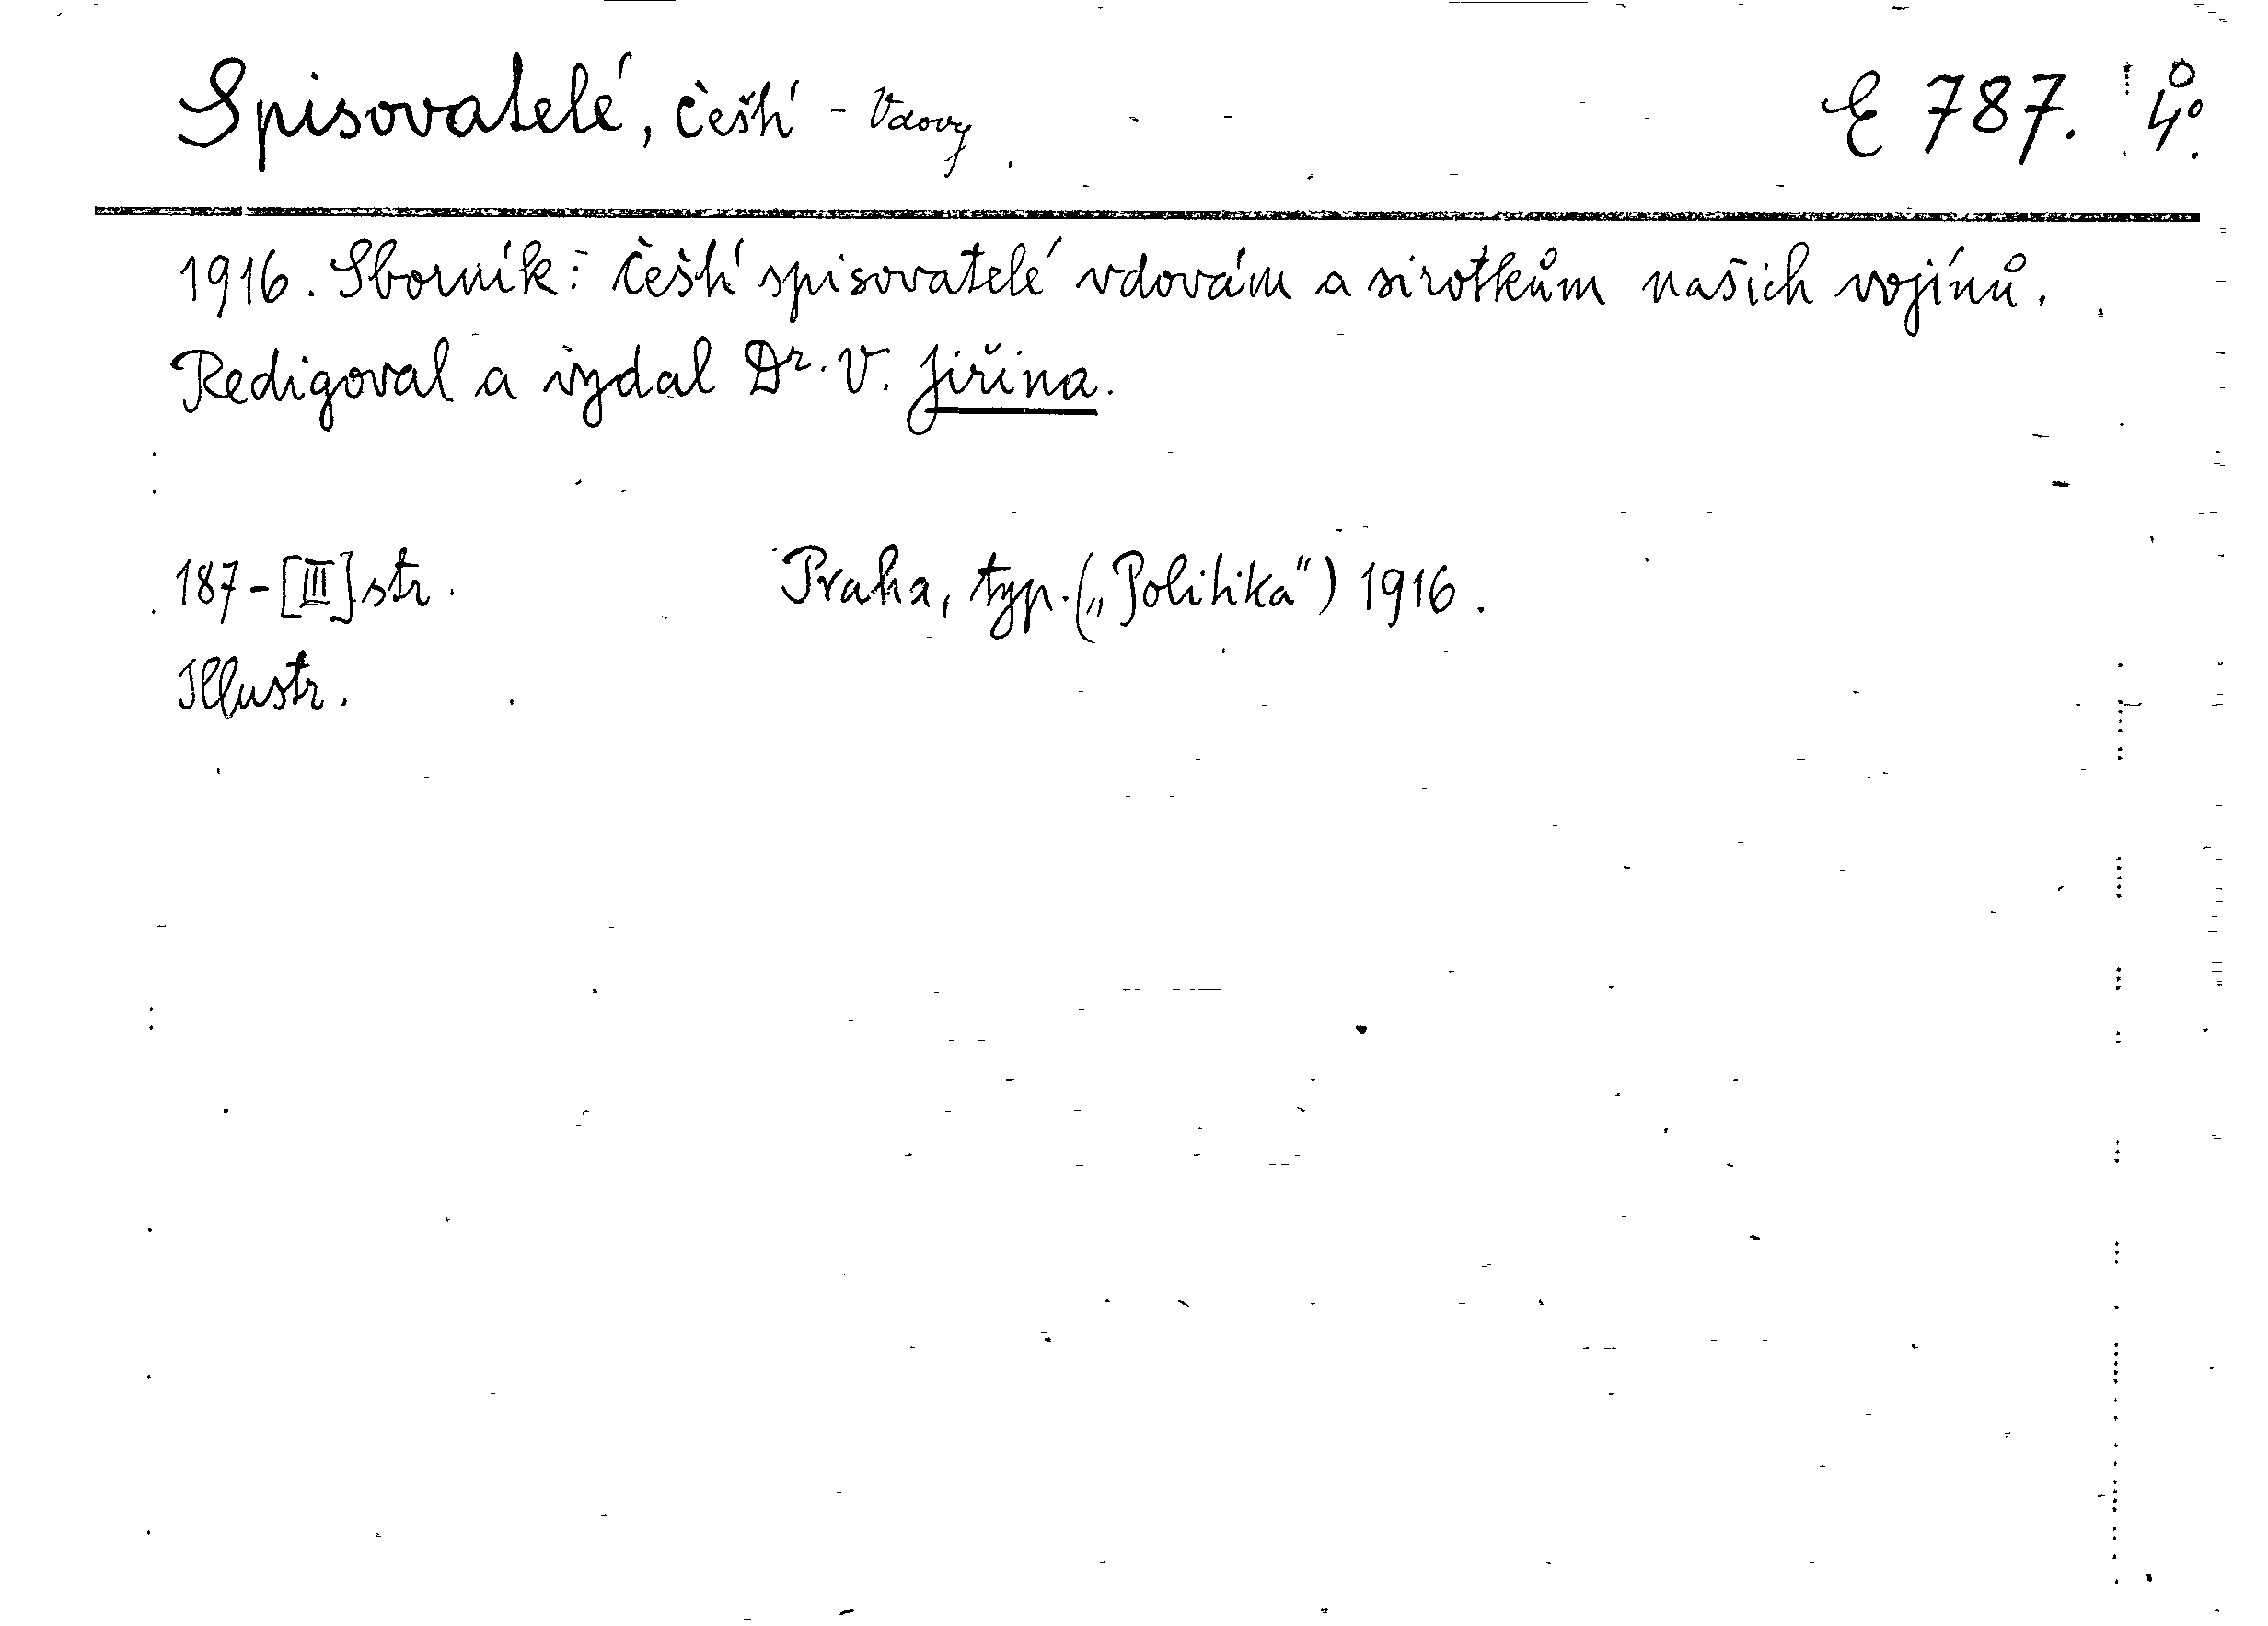 Spisovatelé, čeští - Vdovy E 787. 4°.
1916. Sborník: Čeští spisovatelé vdovám a sirotkům našich vojínů.
Redigoval a vydal Dr. V. Jiřina.
187-[III] str. Praha, typ. („Politika“) 1916.
Illustr.